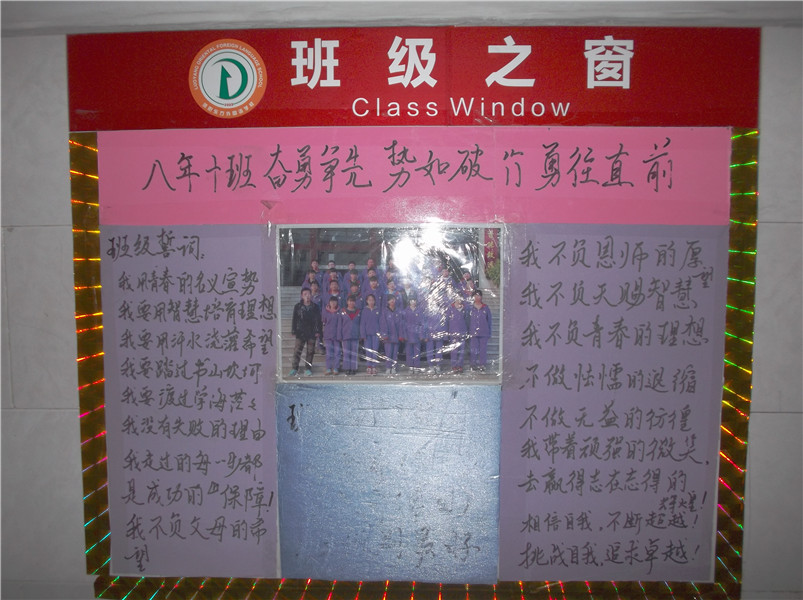 班级之窗
Class Window
八年十班奋勇争先 势如破竹 勇往直前
班级誓词:
我用青春的名义宣势
我要用智慧培育理想
我要用汗水浇落希望
我要踏过书山坎坷
我要渡过学海茫茫
我没有失败的理由
我走过的每一步都
是成功的"保障!
我不负父母的希
望
我不负恩师的厚
望
我不负天赐智慧
我不负青春的理想
不做怯懦的退缩
不做无益的彷徨
我带着顽强的微笑,
去赢得志在志得的
相信自我,不断超越!
挑战自我,追求卓越!